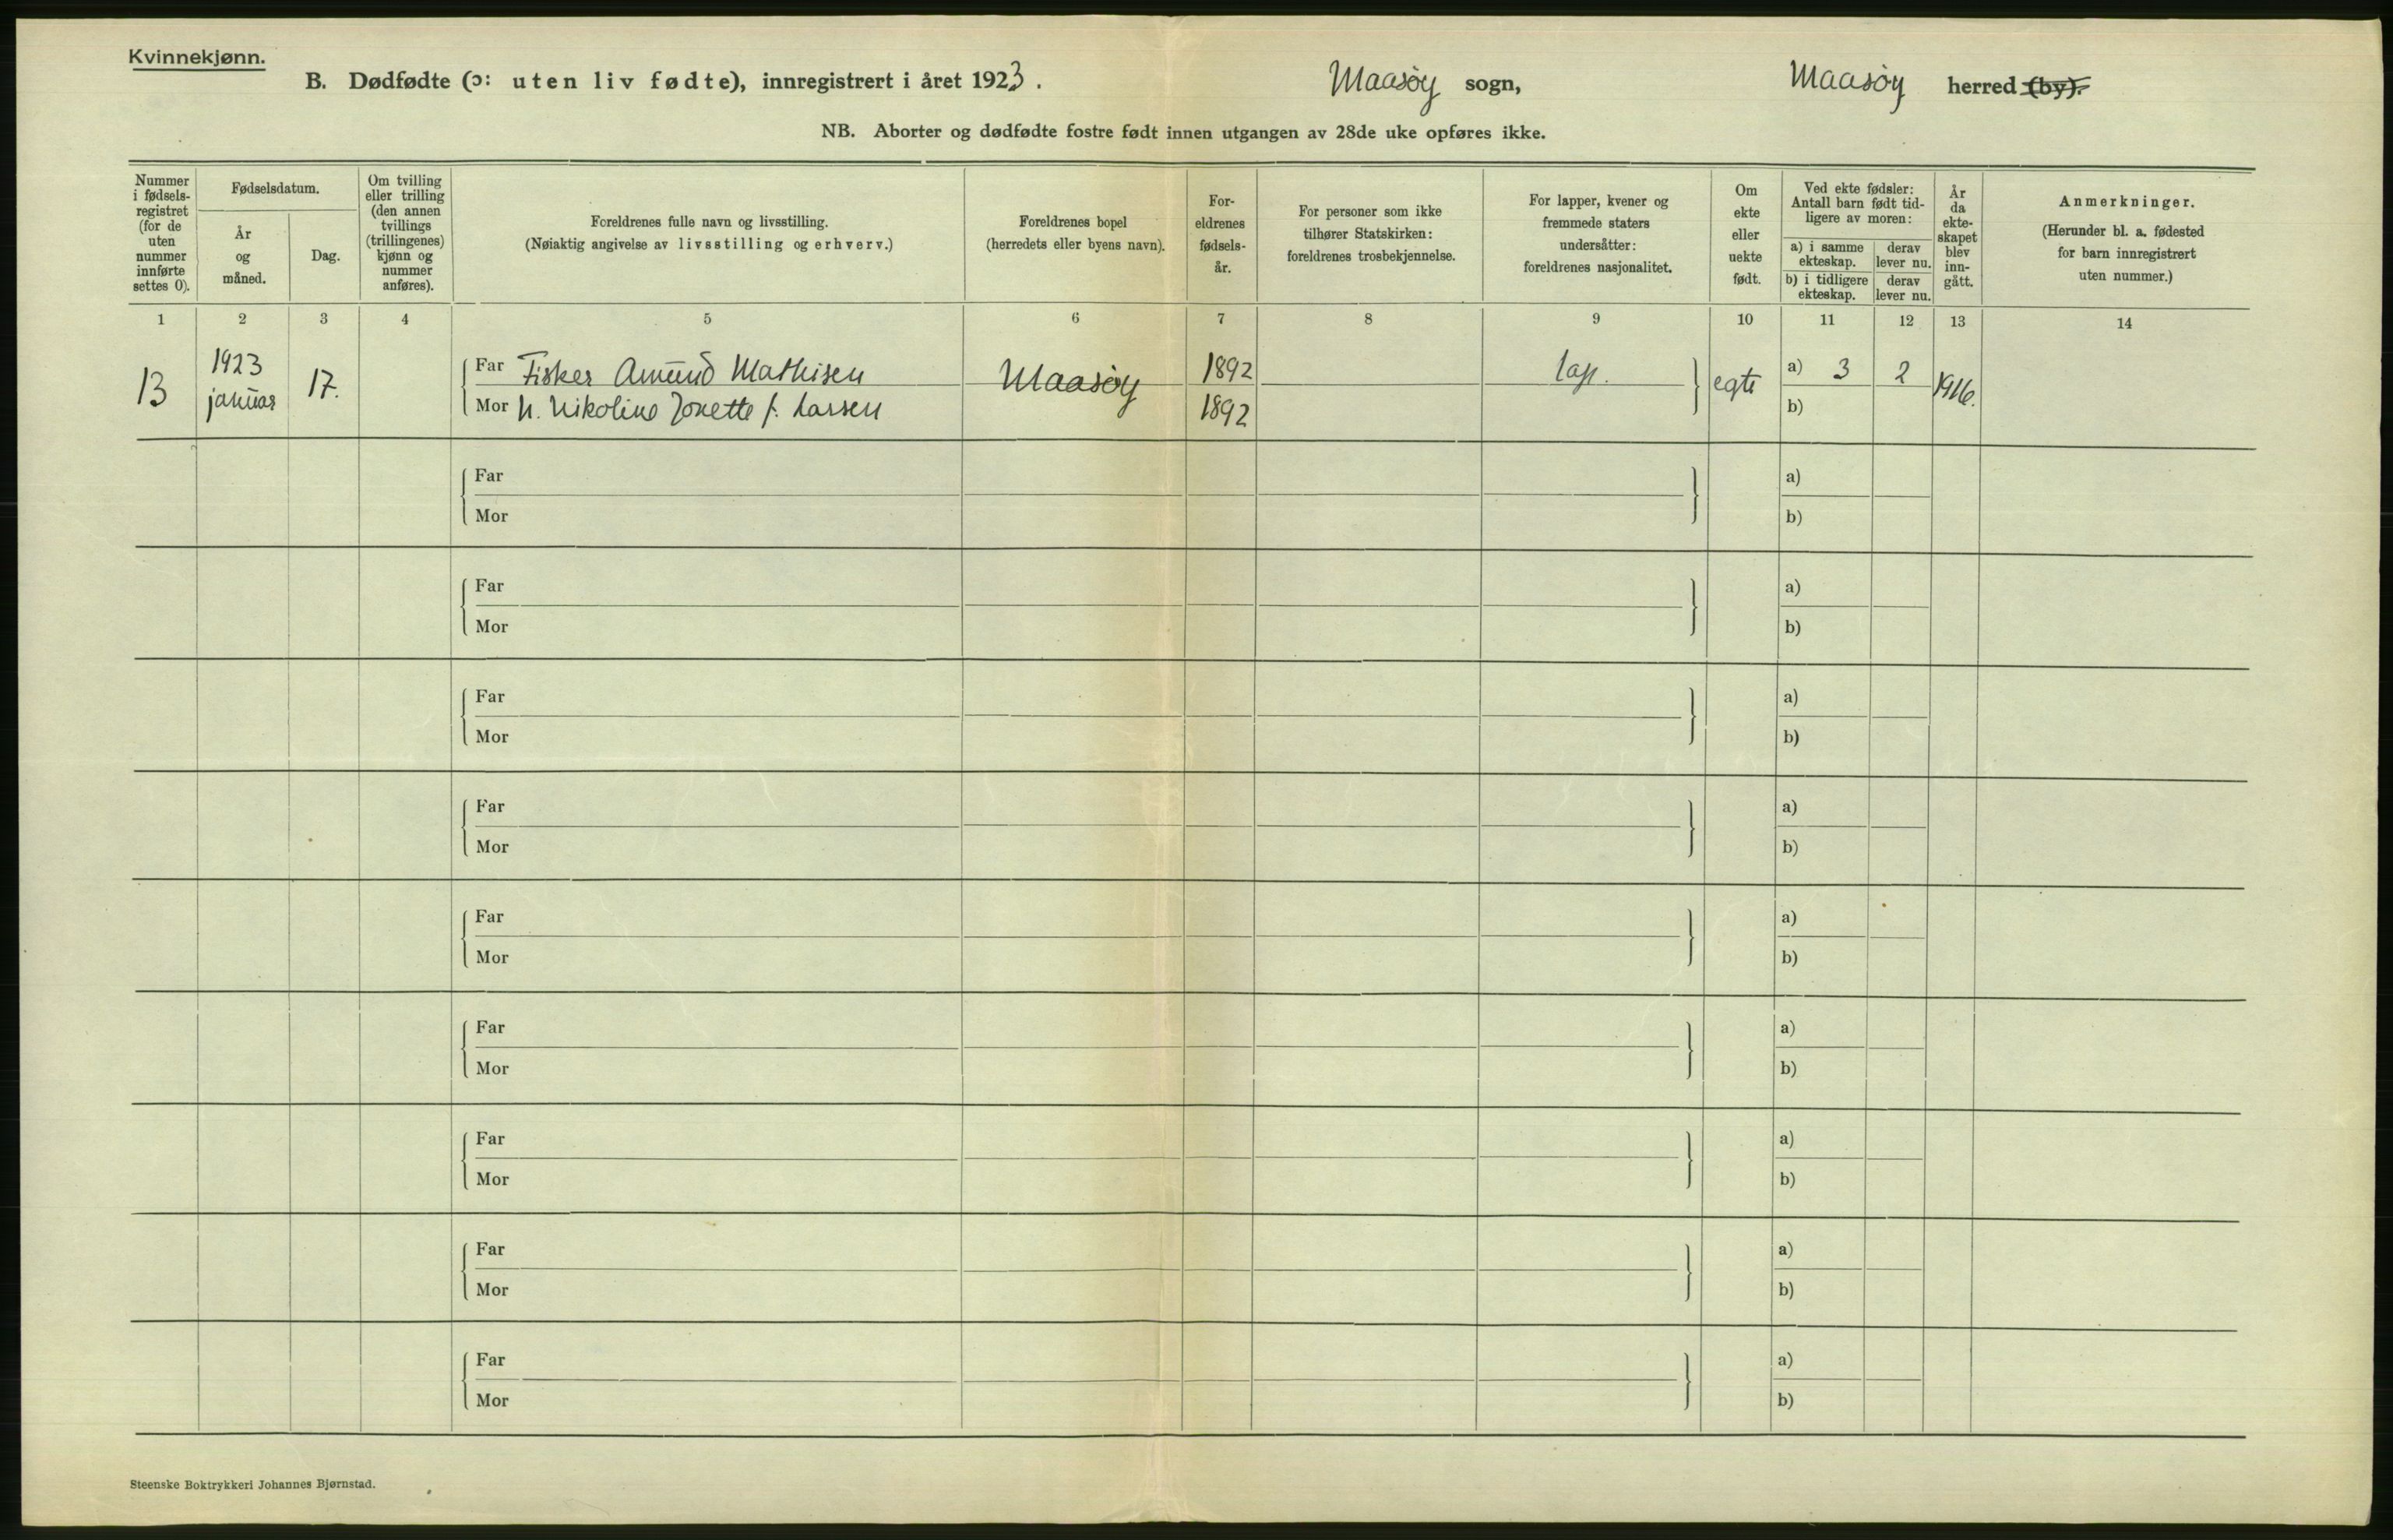 Kvinnekjønn.
B. Dødfødte (ɔ: uten liv fødte), innregistrert i året 1923.
Maasöy sogn,
Maasöy herred (by).
NB. Aborter og dødfødte fostre født innen utgangen av 28de uke opføres ikke.
Nummer
i fødsels-
registret
(for de
uten
nummer
innførte
settes 0).
Fødselsdatum.
År
og
måned.
Dag.
Om tvilling
eller trilling
(den annen
tvillings
(trillingenes)
kjønn og
nummer
anføres).
Foreldrenes fulle navn og livsstilling.
(Nøiaktig angivelse av livsstilling og erhverv.)
Foreldrenes bopel
(herredets eller byens navn).
For-
eldrenes
fødsels-
år.
For personer som ikke
tilhører Statskirken:
foreldrenes trosbekjennelse.
For lapper, kvener og
fremmede staters
undersåtter:
foreldrenes nasjonalitet.
Om
ekte
eller
uekte
født.
Ved ekte fødsler:
Antall barn født tid-
ligere av moren:
a) i samme
ekteskap.
derav
lever nu.
b) i tidligere
ekteskap.
derav
lever nu.
År
da
ekte-
skapet
blev
inn-
gått.
Anmerkninger.
(Herunder bl. a. fødested
for barn innregistrert
uten nummer.)
1 2 3 4 5 6 7 8 9 10 11 12 13 14
13
1923
januar
17.
Far Fisker Amund Mathisen
Mor h. Nikoline Jonette f. Larsen
Maasöy
1892
1892
lap.
egte
a) 3 2
b)
1916.
Far
Mor
a)
b)
Far
Mor
a)
b)
Far
Mor
a)
b)
Far
Mor
a)
b)
Far
Mor
a)
b)
Far
Mor
a)
b)
Far
Mor
a)
b)
Far
Mor
a)
b)
Far
Mor
a)
b)
Steenske Boktrykkeri Johannes Bjørnstad.